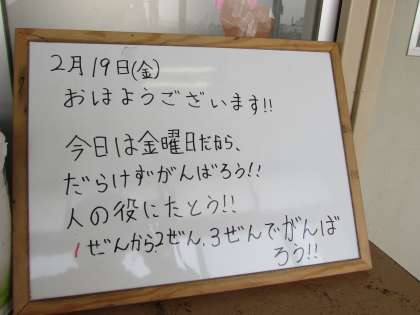 2月19日(金)
おはようございます!!
今日は金曜日だなら、
だらけずがんばろう!!
人の役にたとう!!
1ぜんから2ぜん、3ぜんでがんば
ろう!!